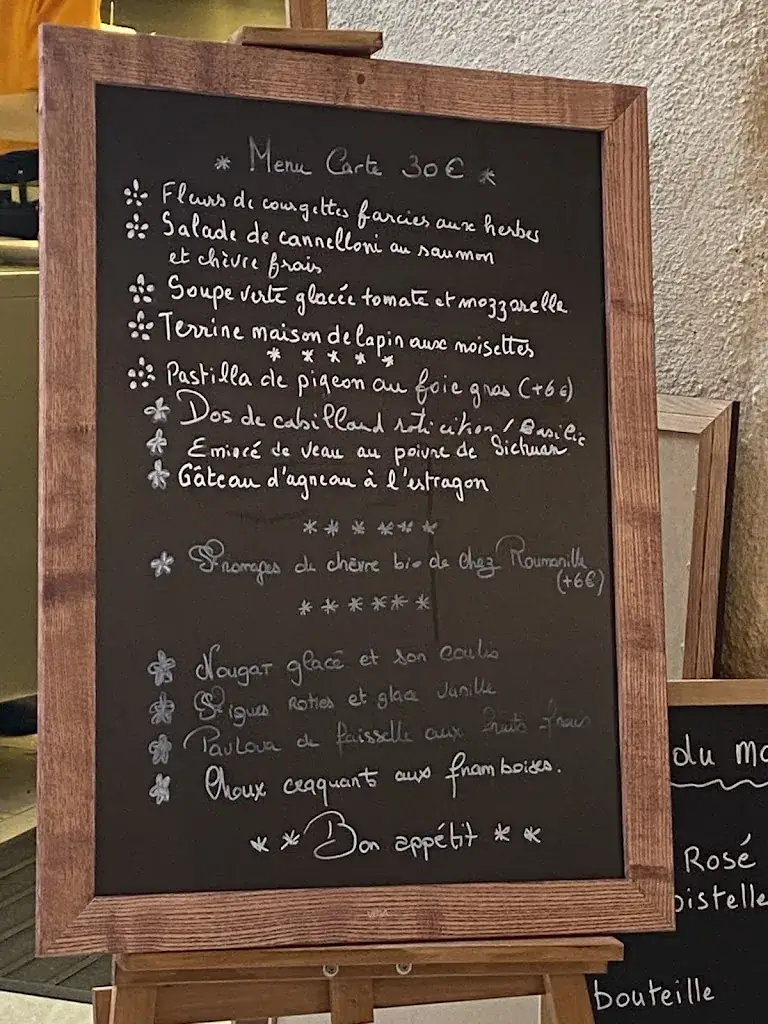 * Menu Carte 30€ *
Fleurs de courgettes farcies aux herbes
Salade de cannelloni au saumon
et chèvre frais
Soupe verte glacée tomate et mozzarella
Terrine maison de lapin aux noisettes
* * * * *
Pastilla de pigeon au foie gras (+6€)
Dos de cabillaud roti citron / Basilic
Emincé de veau au poivre de Sichuan
Gâteau d'agneau à l'estragon
* * * * * *
Fromages de chèvre bio de chez Roumanille
(+6€)
* * * * * *
Nougat glacé et son coulis
Figues roties et glace vanille
Pavlova de faisselle aux fruits frais
Choux craquant aux framboises.
* * Bon appétit * *
du
Rosé
bouteille